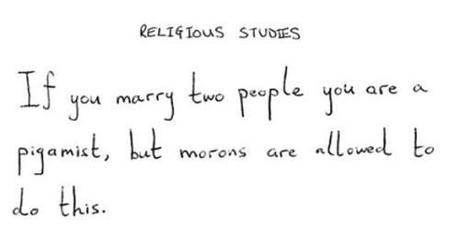 RELIGIOUS STUDIES
If you marry two people you are a
pigamist, but morons are allowed to
do this.